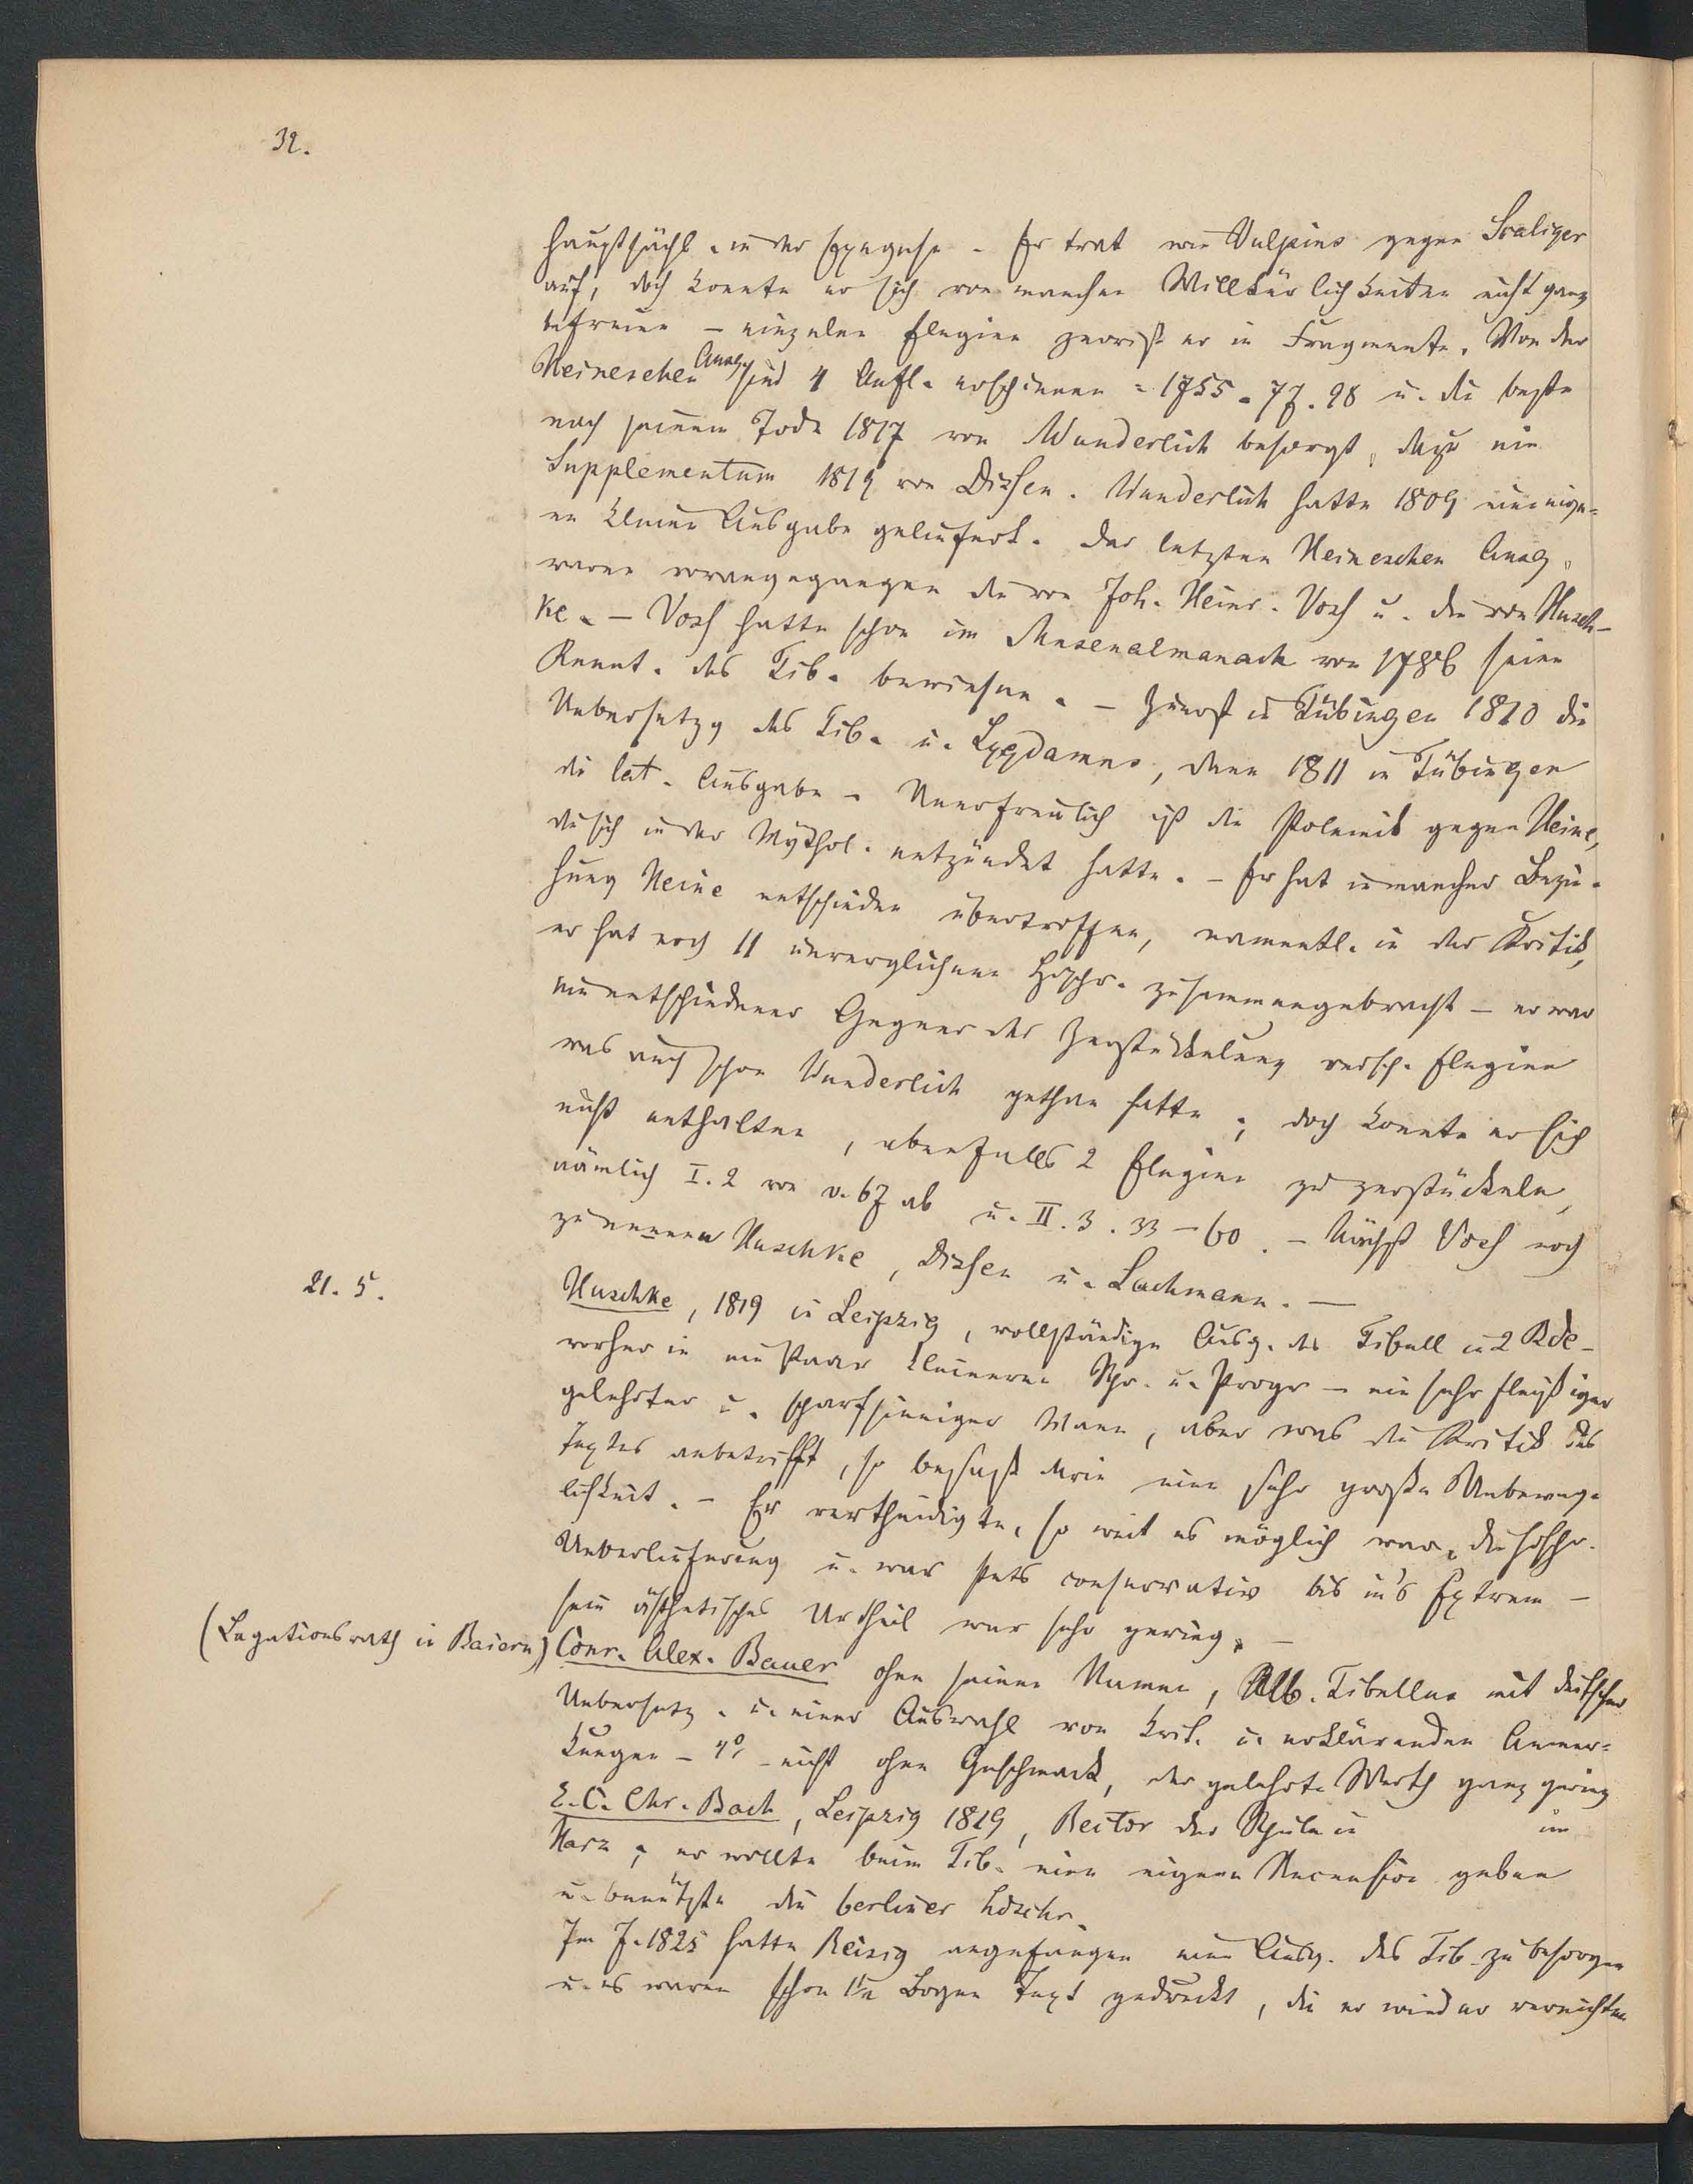 32.
hauptsächl. in der Exegese. Er trat wie Vulpius gegen Scaliger
auf, doch konnte er sich von manchen Willkürlichkeiten nicht ganz
befreien – einzelne Elegien zerriß er in Fragmente. Von der
Heineschen Ausg. sind 4 Aufl. erschienen = 1755. 77. 98 u. die beste
nach seinem Tode 1817 von Wunderlich besorgt, dazu ein
Supplementum 1819 von Dissen. Wunderlich hatte 1809 eine eige=
ne kleine Ausgabe geliefert. Der letzten Heineschen Ausg.
waren vorangegangen die von Joh. Heinr. Voss u. die von Husch-
ke. – Voss hatte schon im Musenalmanach von 1786 seine
Kennt. des Tib. bewiesen. – Zuerst in Tübingen 1810 die
Uebersetzg des Tib. u. Lygdamus, dann 1811 in Tübingen
die lat. Ausgabe. Unerfreulich ist die Polemik gegen Heine,
die sich in der Mythol. entzündet hatte. – Er hat in mancher Bezie-
hung Heine entschieden übertroffen, namentl. in der Kritik,
er hat noch 11 unverglichene Hdschr. zusammengebracht – er war
ein entschiedener Gegner der Zerstückelung versch. Elegien
was auch schon Wunderlich gethan hatte; doch konnte er sich
nicht enthalten, ebenfalls 2 Elegien zu zerstückeln,
nämlich I. 2 von v. 67 ab u. II. 3. 33 – 60. – Nächst Voss noch
zu nennen Huschke, Dissen u. Lachmann. –
21. 5.
Huschke, 1819 in Leipzig, vollständige Ausg. des Tibull in 2 Bde –
vorher in ein Paar kleineren Schr. u. Progr – ein sehr fleißiger
gelehrter u. scharfsinniger Mann, aber was die Kritik des
Textes anbetrifft, so besaß er eine sehr große Unbeweg-
lichkeit. – Er vertheidigte, so weit es möglich war, die hdschr.
Ueberlieferung u. war stets conservativ bis in's Extrem –
sein ästhetisches Urtheil war sehr gering. –
(Legationsrath in Baiern) Conr. Alex. Bauer ohne seinen Namen, Alb. Tibullus mit deutscher
Uebersetz. u. einer Auswahl von krit. u. erklärenden Anmer=
kungen – 4° – nicht ohne Geschmack, der gelehrte Werth ganz gering
E. C. Chr. Bach, Leipzig 1819, Rector der Schule in im
Harz; er wollte beim Tib. eine eigene Recension geben
u. benützte die berliner Hdschr.
Im J. 1825 hatte Reisig angefangen eine Ausg. des Tib. zu besorgen
u. es waren schon Bogen Text gedruckt, die er wieder vernichten